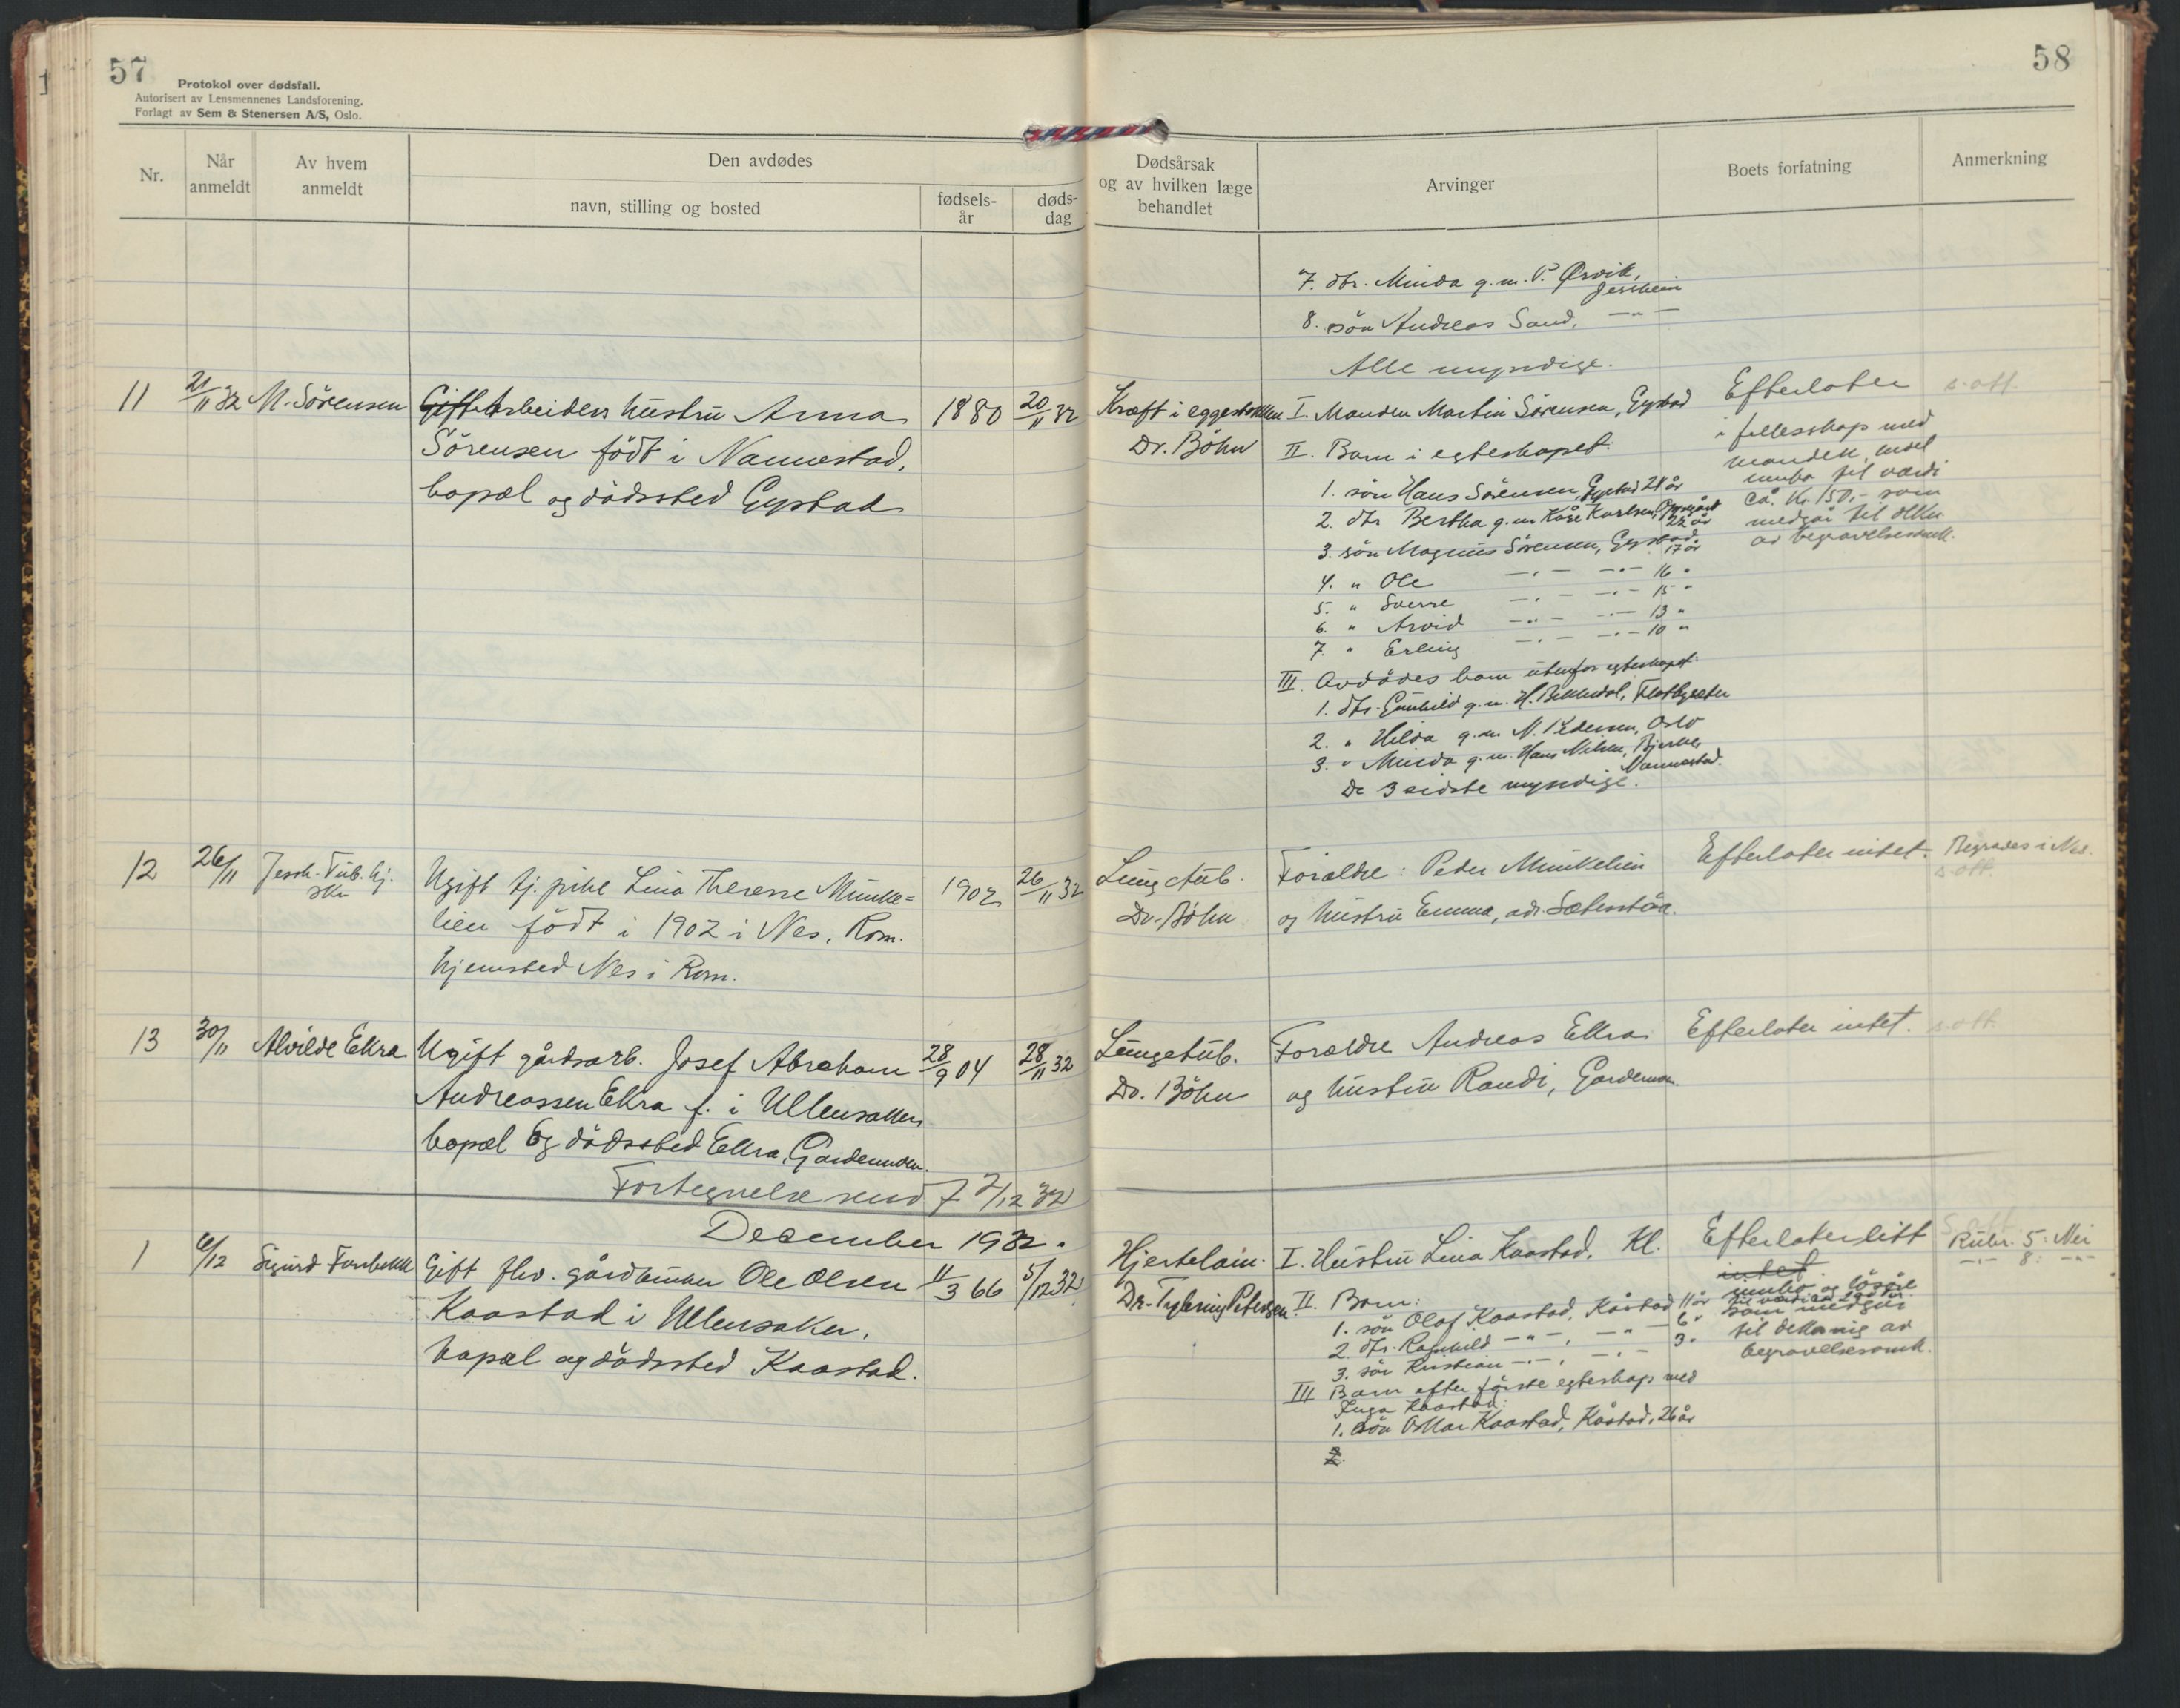 57
Protokol over dødsfall.
Autorisert av Lensmennenes Landsforening.
Forlagt av Sem & Stenersen A/S, Oslo.
Nr.
Når anmeldt
Av hvem anmeldt
Den avdødes
navn, stilling og bosted
fødsels-år
døds-dag
11 21/11 32 M. Sörensen Gift Arbeiders hustru Anna 1880 20/11 32
Sörensen födt i Nannestad,
bopæl og dödssted Gystad
12 26/11 Jessh. Tub. hj. Ugift tj. pike Lina Therese Munke= 1902 26/11 32
lien födt i 1902 i Nes, Rom.
hjemsted Nes i Rom.
13 30/11 Alvilde Ekra Ugift gårdsarb. Josef Abraham 28/9 04 28/11 32
Andreassen Ekra f. i Ullensaker
bopæl og dödssted Ekra, Gardermoen.
Fortegnelse send 7/12 32
December 1932.
1 6/12 Sigurd Furubekk Gift fhv. gårdbruker Ole Olsen 11/3 66 5/12 32
Kaastad i Ullensaker.
bopæl og dödssted Kaastad.
58
Dødsårsak og av hvilken læge behandlet
Arvinger
Boets forfatning
Anmerkning
7. dtr. Minda g.m. P. Ørvik,
Jessheim
8. sön Andreas Sand, — " —
Alle myndige.
Kræft i eggestokken I. Manden Martin Sörensen, Gystad Efterlater s. att.
Dr. Böhn II. Barn i egteskapet: i fellesskap med
manden endel
1. sön Hans Sörensen, Gystad 24 år innbo til værdi
2. dtr Bertha g.m. Kåre Karlsen, 22 år ca. Kr. 150,- som
3. sön Magnus Sörensen, Gystad. 17 år medgår til dekn.
av begravelsesomk.
4. " Ole — " — — " — 16 "
5. " Sverre — " — — " — 15 "
6. " Arvid — " — — " — 13 "
7. " Erling — " — — " — 10 "
III. Avdödes barn utenfor egteskapet:
1. dtr. Gunhild g.m. H. Bekkedal,
2. " Hilda g.m. N. Pedersen, Oslo
3. " Minda g.m. Hans Nilsen, Bjerke,
Nannestad.
De 3 sidste myndige.
Lungetub. Forældre: Peder Munkelien Efterlater intet. Begraves i Nes.
s. att.
Dr. Böhn og hustru Emma, adr.
Lungetub. Forældre Andreas Ekra Efterlater intet. s. att.
Dr. Böhn og hustru Randi, Gardermoen.
Hjertelam. I. Hustru Lina Kaastad. Kl. Efterlater litt Rubr. 5: Nei
intet — " — 8: — " —
Dr. Tybring Petersen. II. Barn: innbo og lösöre
1. sön Olaf Kaastad, Kåstad 11 år som medgår
2. dtr. Ragnhild — " —, — " — 6 " til dekning av
3. sön Kristian — " —, — " — 3 " begravelsesomk.
III Barn efter förste egteskap med
Inga Kaastad:
1. sön Oskar Kaastad, Kåstad, 26 år
2.